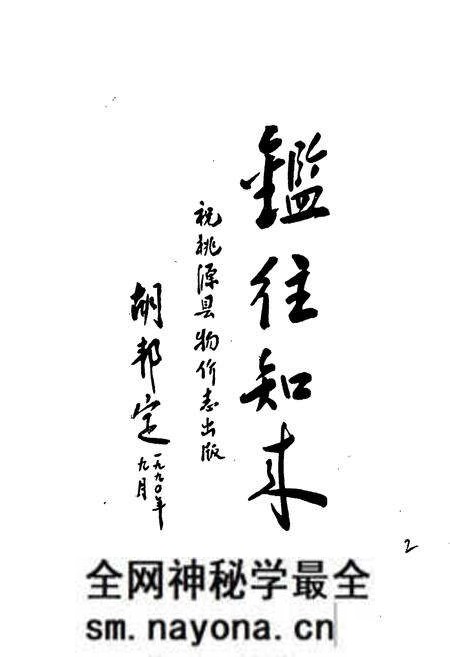 鑑往知来
祝桃源县物价志出版
胡邦定
一九九〇年
九月
2
全网神秘学最全
sm.nayona.cn